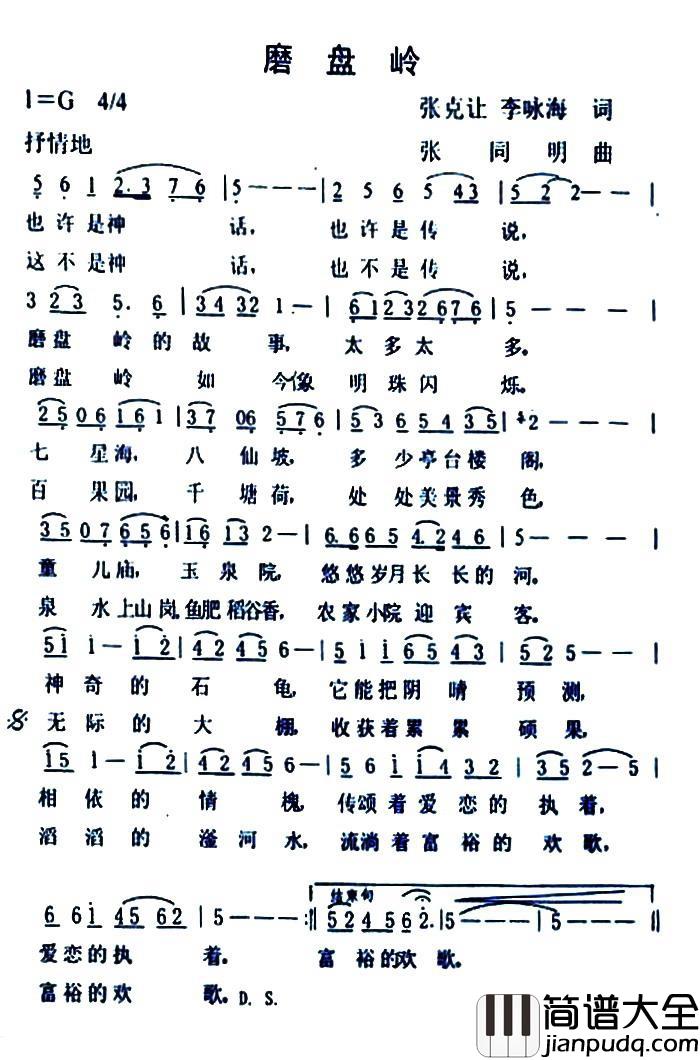 磨盘岭
1=G 4/4 张克让 李咏海 词
抒情地 张同明 曲
5 6 1 2.3 7 6 | 5 - - - | 2 5 6 5 43 | 5 2 2 - - |
也许是神话, 也许是传说,
这不是神话, 也不是传说,
3 23 5. 6 | 34 32 1 - | 61 23 2676 | 5 - - - |
磨盘岭的故事, 太多太多。
磨盘岭如今像明珠闪烁。
25 06 161 | 37 06 576 | 35 36 54 35 | 2 - - - |
七星海, 八仙坡, 多少亭台楼阁,
百果园, 千塘荷, 处处美景秀色,
35 07 656 | 16 13 2 - | 6.6 65 4.2 46 | 5 - - - |
童儿庙, 玉泉院, 悠悠岁月长长的河。
泉水上山岗,鱼肥稻谷香, 农家小院迎宾客。
51 1 - 12 | 42 45 6 - | 51 1 65 43 | 52 5 - - |
神奇的石龟, 它能把阴晴预测,
无际的大棚, 收获着累累硕果,
15 1 - 12 | 42 45 6 - | 45 1 6542 | 35 2 - 5 |
相依的情槐, 传颂着爱恋的执着,
滔滔的滏河水, 流淌着富裕的欢歌,
结束句
6 61 45 62 | 5 - - - :‖ 52 45 62. | 5 - - - | 5 - - - ‖
爱恋的执着。 富裕的欢歌。
富裕的欢歌。D.S.
简谱大全
jianpudq.com